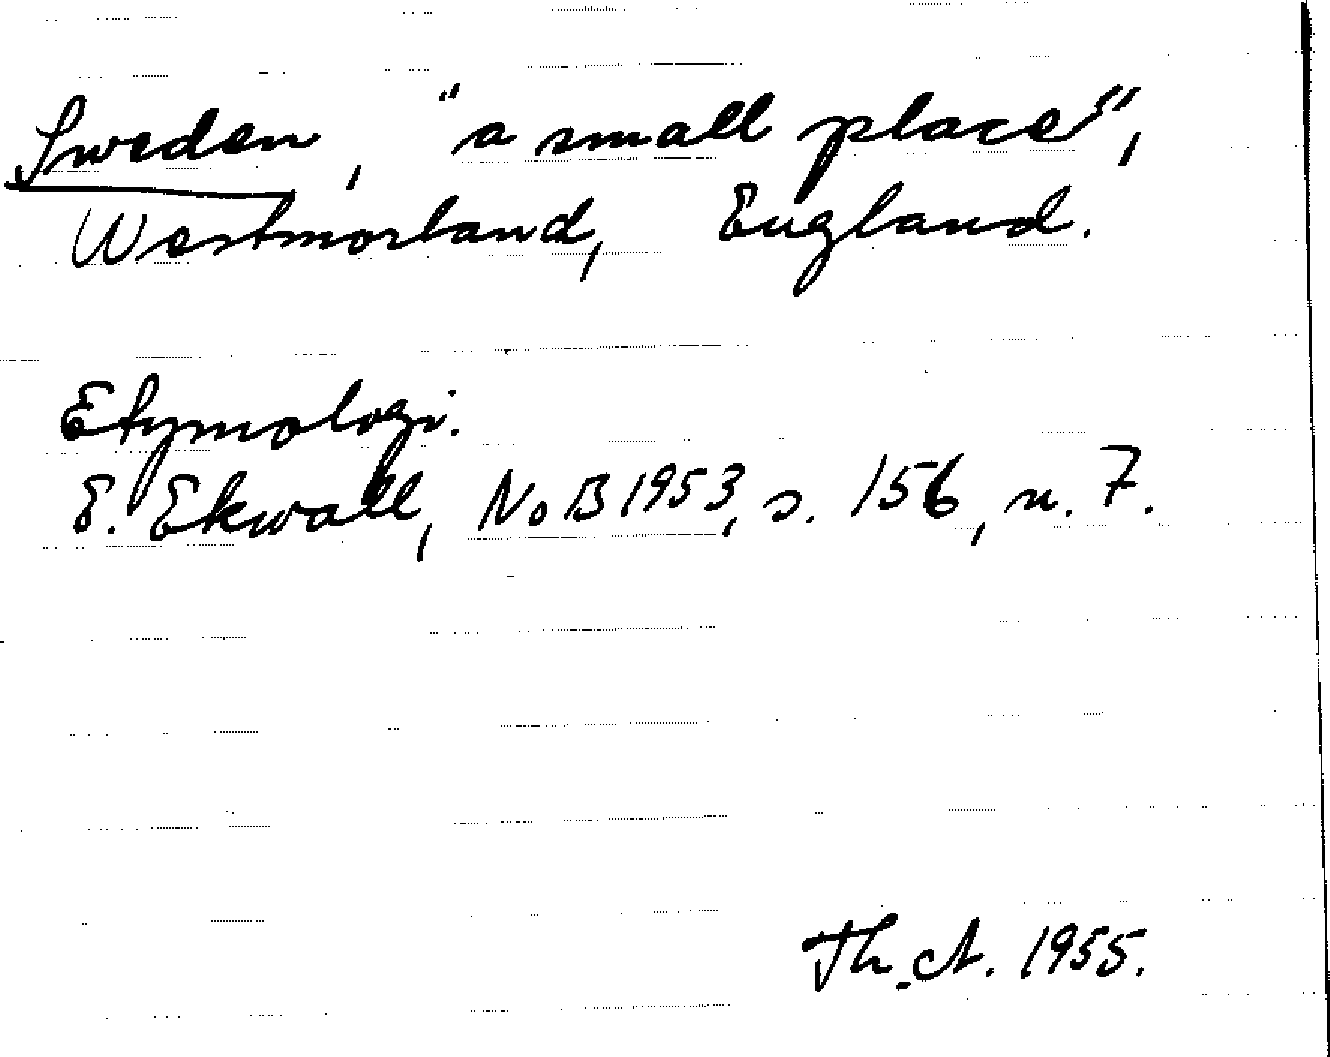 Sweden, "a small place",
Westmorland, England.
Etymologi.
E. Ekwall, NoB 1953, s. 156, n. 7.
Th. A. 1955.